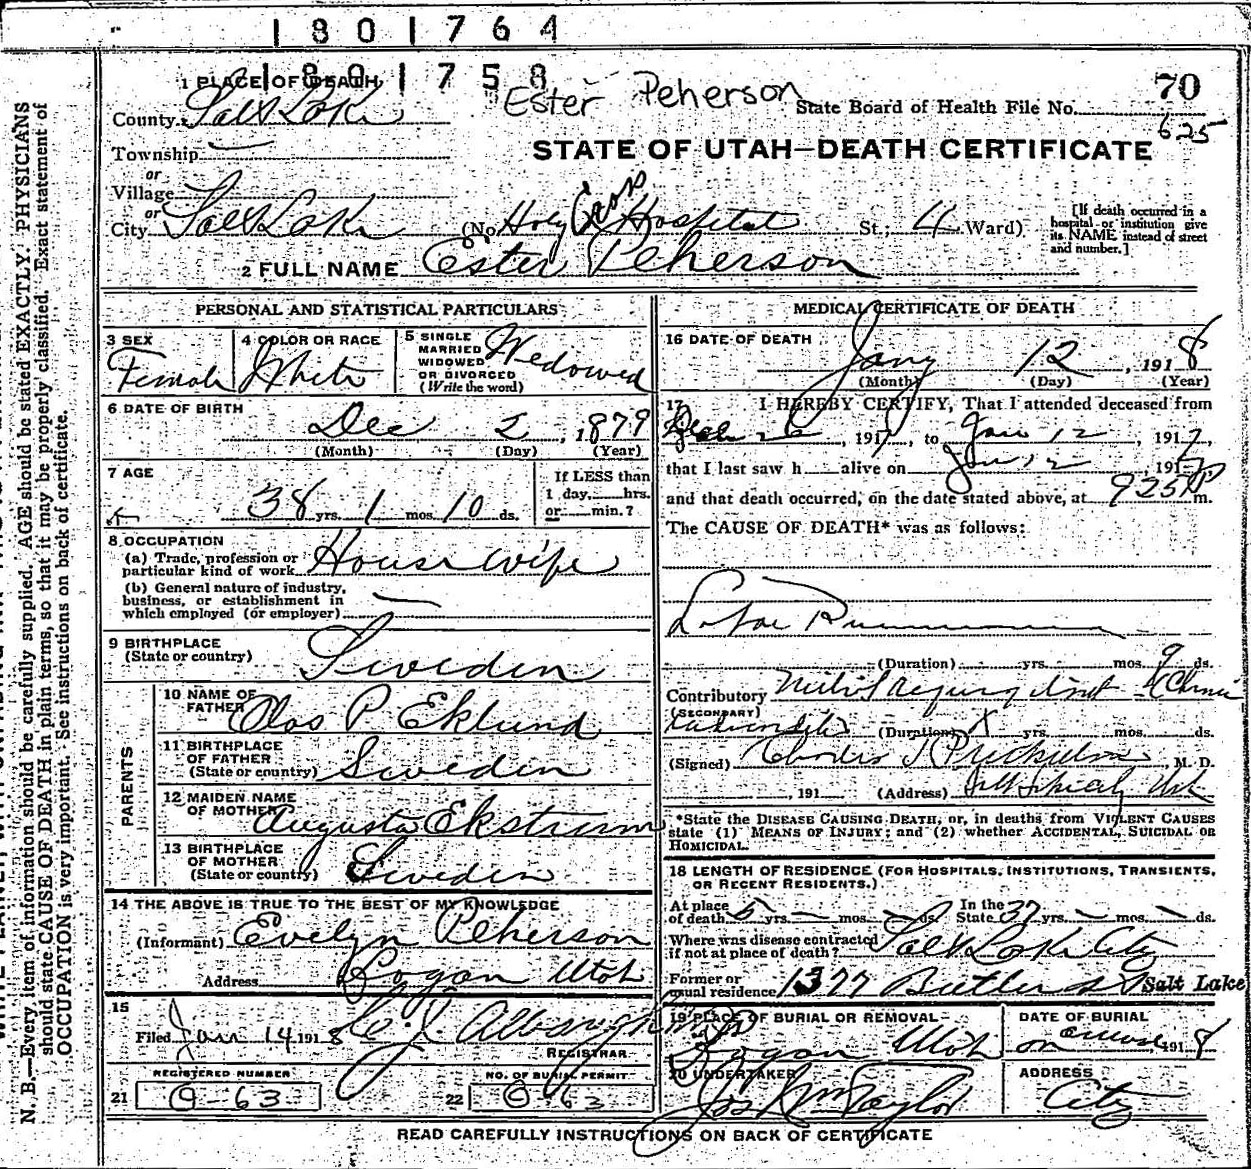 1801764
1801758
1 PLACE OF DEATH
Ester Peherson
70
County Salt Lake
State Board of Health File No. 625
Township
or
Village
or
STATE OF UTAH—DEATH CERTIFICATE
City Salt Lake (No. Holy Cross Hospital St.; 4 Ward)
[If death occurred in a hospital or institution give its NAME instead of street and number.]
2 FULL NAME Ester Peherson
PERSONAL AND STATISTICAL PARTICULARS
3 SEX
Female
4 COLOR OR RACE
White
5 SINGLE
MARRIED
WIDOWED
OR DIVORCED
(Write the word)
Wedowed
6 DATE OF BIRTH
Dec 2, 1879
(Month) (Day) (Year)
7 AGE
38 yrs. 1 mos. 10 ds.
If LESS than
1 day, hrs.
or min.?
8 OCCUPATION
(a) Trade, profession or
particular kind of work House wife
(b) General nature of industry,
business, or establishment in
which employed (or employer)
9 BIRTHPLACE
(State or country) Sweden
PARENTS
10 NAME OF
FATHER Olos P. Eklund
11 BIRTHPLACE
OF FATHER
(State or country) Sweden
12 MAIDEN NAME
OF MOTHER Augusta Ekstrum
13 BIRTHPLACE
OF MOTHER
(State or country) Sweden
14 THE ABOVE IS TRUE TO THE BEST OF MY KNOWLEDGE
(Informant) Evelyn Peherson
Address Logan Utah
15
Filed Jan 14 1918
REGISTRAR
REGISTERED NUMBER
21 0-63
NO. OF BURIAL PERMIT
22 0-63
MEDICAL CERTIFICATE OF DEATH
16 DATE OF DEATH
Jany 12, 1918
(Month) (Day) (Year)
17 I HEREBY CERTIFY, That I attended deceased from
, 191 , to Jan 12, 1917,
that I last saw h alive on Jan 12, 1917
and that death occurred, on the date stated above, at 925 P m.
The CAUSE OF DEATH* was as follows:
(Duration) yrs. mos. 9 ds.
Contributory
(SECONDARY)
(Duration) yrs. mos. ds.
(Signed) , M. D.
, 191 (Address)
*State the DISEASE CAUSING DEATH, or, in deaths from VIOLENT CAUSES
state (1) MEANS OF INJURY; and (2) whether ACCIDENTAL, SUICIDAL OR
HOMICIDAL.
18 LENGTH OF RESIDENCE (FOR HOSPITALS, INSTITUTIONS, TRANSIENTS,
OR RECENT RESIDENTS.)
At place
of death 5 yrs. mos. ds.
In the
State 37 yrs. mos. ds.
Where was disease contracted
if not at place of death? Salt Lake City
Former or
usual residence 1377 Butler Salt Lake
19 PLACE OF BURIAL OR REMOVAL
Logan Utah
DATE OF BURIAL
1918
20 UNDERTAKER
Jos Wm Taylor
ADDRESS
City
READ CAREFULLY INSTRUCTIONS ON BACK OF CERTIFICATE
N. B.—Every item of information should be carefully supplied. AGE should be stated EXACTLY. PHYSICIANS
should state CAUSE OF DEATH in plain terms, so that it may be properly classified. Exact statement of
OCCUPATION is very important. See instructions on back of certificate.